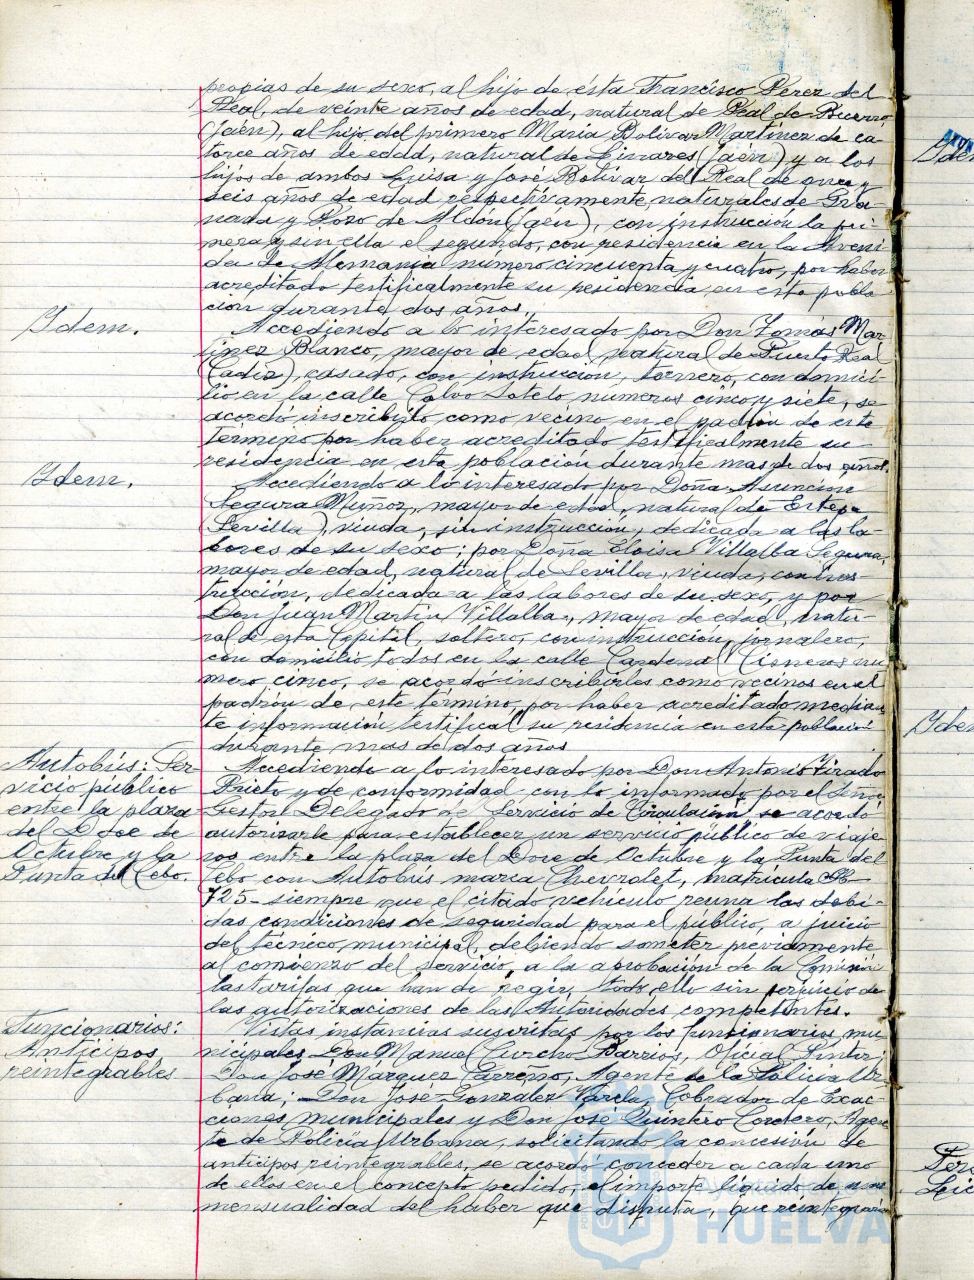 propias de su sexo, al hijo de ésta Francisco Pérez del
Real, de veinte años de edad, natural de Peal de Becerro
(Jaén), al hijo del primero María Bolívar Martínez de ca-
torce años de edad, natural de Linares (Jaén) y a los
hijos de ambos Luisa y José Bolívar del Real de once y
seis años de edad respectivamente naturales de Gra-
nada y Pozo de Aldón (Jaen), con instrucción la pri-
mera y sin ella el segundo, con residencia en la Aveni-
da de Alemania número cincuenta y cuatro, por haber
acreditado testificalmente su residencia en esta pobla-
cion durante dos años.
Idem.
Accediendo a lo interesado por Don Tomás Mar-
tinez Blanco, mayor de edad, natural de Puerto Real
(Cadiz), casado, con instrucción, tornero, con domici-
lio en la calle Calvo Sotelo, números cinco y siete, se
acordó inscribirlo como vecino en el padrón de este
término por haber acreditado testificalmente su
residencia en esta población durante mas de dos años.
Idem.
Accediendo a lo interesado por Doña Asunción
Segura Muñoz, mayor de edad, natural de Estepa
(Sevilla), viuda, sin instrucción, dedicada a las la-
bores de su sexo; por Doña Eloisa Villalba Segura,
mayor de edad, natural de Sevilla, viuda, con ins-
trucción, dedicada a las labores de su sexo, y por
Don Juan Martin Villalba, mayor de edad, natu-
ral de esta Capital, soltero, con instrucción, jornalero,
con domicilio todos en la calle Cardenal Cisneros nú-
mero cinco, se acordó inscribirles como vecinos en el
padrón de este término, por haber acreditado median-
te información testifical su residencia en esta población
durante mas de dos años
Autobús: Ser-
vicio público
entre la plaza
del Doce de
Octubre y la
Punta del Sebo.
Accediendo a lo interesado por Don Antonio Tirado
Prieto y de conformidad con lo informado por el Señor
Gestor Delegado de Servicio de Circulación se acordó
autorizarle para establecer un servicio público de viaje-
ros entre la plaza del Doce de Octubre y la Punta del
Sebo con Autobús marca Chevrolet, matrícula
725- siempre que el citado vehículo reuna las debi-
das condiciones de seguridad para el público, a juicio
del técnico municipal, debiendo someter previamente
al comienzo del servicio, a la aprobación de la Comisión
las tarifas que han de regir, todo ello sin perjuicio de
las autorizaciones de las Autoridades competentes.
Funcionarios:
Anticipos
reintegrables
Vistas instancias suscritas por los funcionarios mu-
nicipales Don Manuel Barrios, Oficial Pintor;
Don José Marquez Carreño, Agente de la Policía Ur-
bana; Don José Gonzalez Varela, Cobrador de Exac-
ciones municipales y Don José Quintero Cordero, Agen-
te de Policía Urbana, solicitando la concesión de
anticipos reintegrables, se acordó conceder a cada uno
de ellos en el concepto pedido, el importe líquido de una
mensualidad del haber que disfruta, que reintegrará
Ayuntamiento
HUELVA